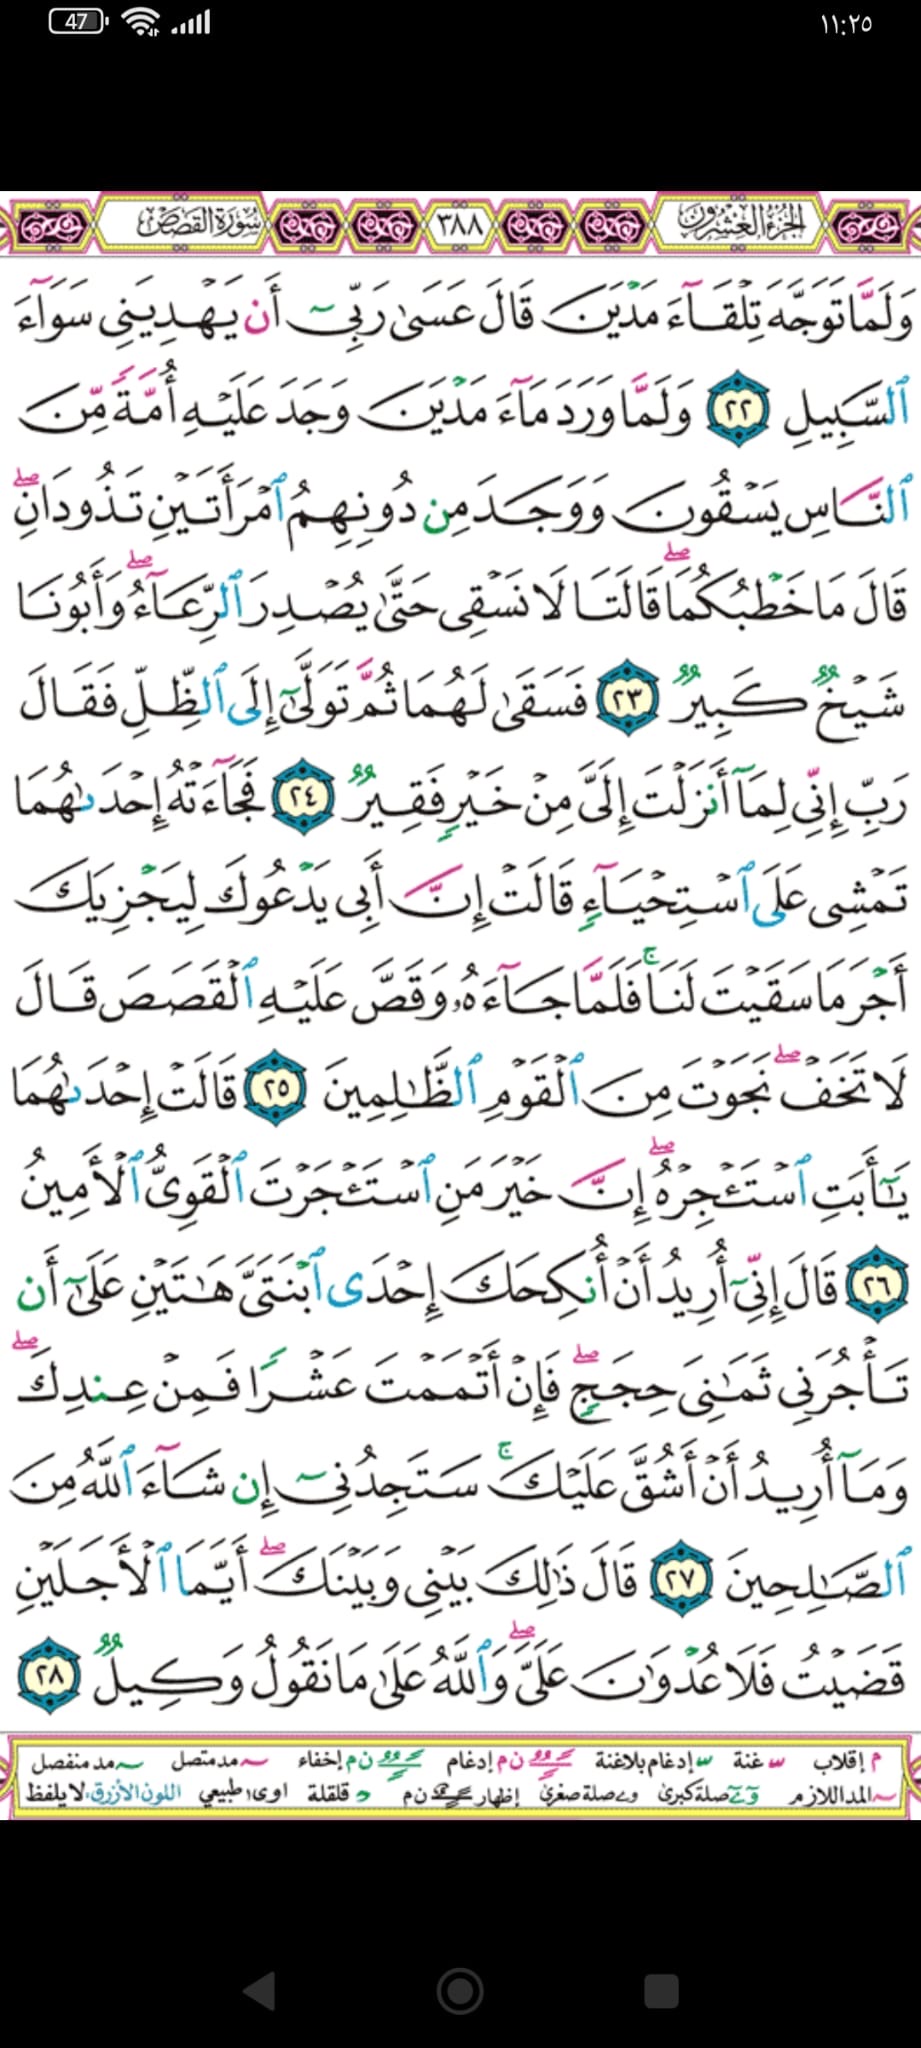 47
١١:٢٥
الجزء العشرون
٣٨٨
سورة القصص
وَلَمَّا تَوَجَّهَ تِلْقَآءَ مَدْيَنَ قَالَ عَسَىٰ رَبِّىٓ أَن يَهْدِيَنِى سَوَآءَ
ٱلسَّبِيلِ ٢٢ وَلَمَّا وَرَدَ مَآءَ مَدْيَنَ وَجَدَ عَلَيْهِ أُمَّةً مِّنَ
ٱلنَّاسِ يَسْقُونَ وَوَجَدَ مِن دُونِهِمُ ٱمْرَأَتَيْنِ تَذُودَانِ ۖ
قَالَ مَا خَطْبُكُمَا ۖ قَالَتَا لَا نَسْقِى حَتَّىٰ يُصْدِرَ ٱلرِّعَآءُ ۖ وَأَبُونَا
شَيْخٌ كَبِيرٌ ٢٣ فَسَقَىٰ لَهُمَا ثُمَّ تَوَلَّىٰٓ إِلَى ٱلظِّلِّ فَقَالَ
رَبِّ إِنِّى لِمَآ أَنزَلْتَ إِلَىَّ مِنْ خَيْرٍ فَقِيرٌ ٢٤ فَجَآءَتْهُ إِحْدَىٰهُمَا
تَمْشِى عَلَى ٱسْتِحْيَآءٍ قَالَتْ إِنَّ أَبِى يَدْعُوكَ لِيَجْزِيَكَ
أَجْرَ مَا سَقَيْتَ لَنَا ۚ فَلَمَّا جَآءَهُۥ وَقَصَّ عَلَيْهِ ٱلْقَصَصَ قَالَ
لَا تَخَفْ ۖ نَجَوْتَ مِنَ ٱلْقَوْمِ ٱلظَّٰلِمِينَ ٢٥ قَالَتْ إِحْدَىٰهُمَا
يَٰٓأَبَتِ ٱسْتَـْٔجِرْهُ ۖ إِنَّ خَيْرَ مَنِ ٱسْتَـْٔجَرْتَ ٱلْقَوِىُّ ٱلْأَمِينُ
٢٦ قَالَ إِنِّىٓ أُرِيدُ أَنْ أُنكِحَكَ إِحْدَى ٱبْنَتَىَّ هَٰتَيْنِ عَلَىٰٓ أَن
تَأْجُرَنِى ثَمَٰنِىَ حِجَجٍ ۖ فَإِنْ أَتْمَمْتَ عَشْرًا فَمِنْ عِندِكَ ۖ
وَمَآ أُرِيدُ أَنْ أَشُقَّ عَلَيْكَ ۚ سَتَجِدُنِىٓ إِن شَآءَ ٱللَّهُ مِنَ
ٱلصَّٰلِحِينَ ٢٧ قَالَ ذَٰلِكَ بَيْنِى وَبَيْنَكَ ۖ أَيَّمَا ٱلْأَجَلَيْنِ
قَضَيْتُ فَلَا عُدْوَٰنَ عَلَىَّ ۖ وَٱللَّهُ عَلَىٰ مَا نَقُولُ وَكِيلٌ ٢٨
م إقلاب غنة إدغام بلاغنة ن م إدغام ن م إخفاء مد متصل مد منفصل
المد اللازم صلة كبرى صلة صغرى إظهار ن م قلقلة اوى طبيعي اللون الأزرق، لا يلفظ